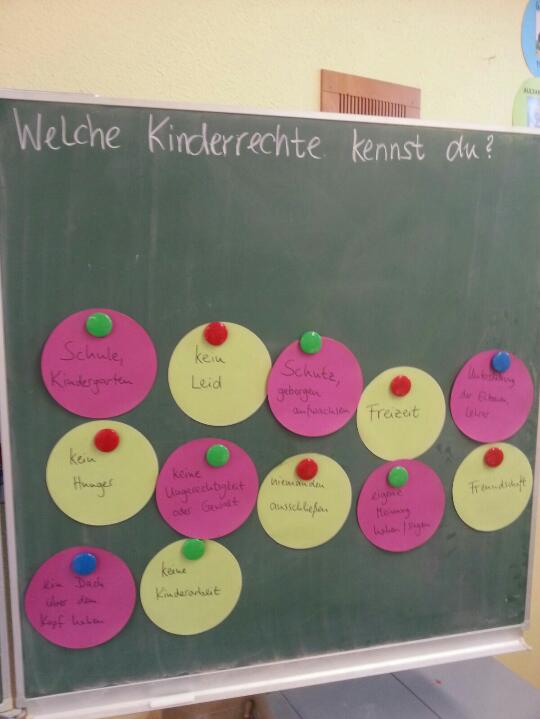 Welche Kinderrechte kennst du?
Schule,
Kindergarten
kein
Leid
Schutz,
geborgen
aufwachsen
Freizeit
Unterstützung
der Eltern,
Lehrer
kein
Hunger
keine
Ungerechtigkeit
oder Gewalt
niemanden
ausschließen
eigene
Meinung
haben/sagen
Freundschaft
ein Dach
über dem
Kopf haben
keine
Kinderarbeit